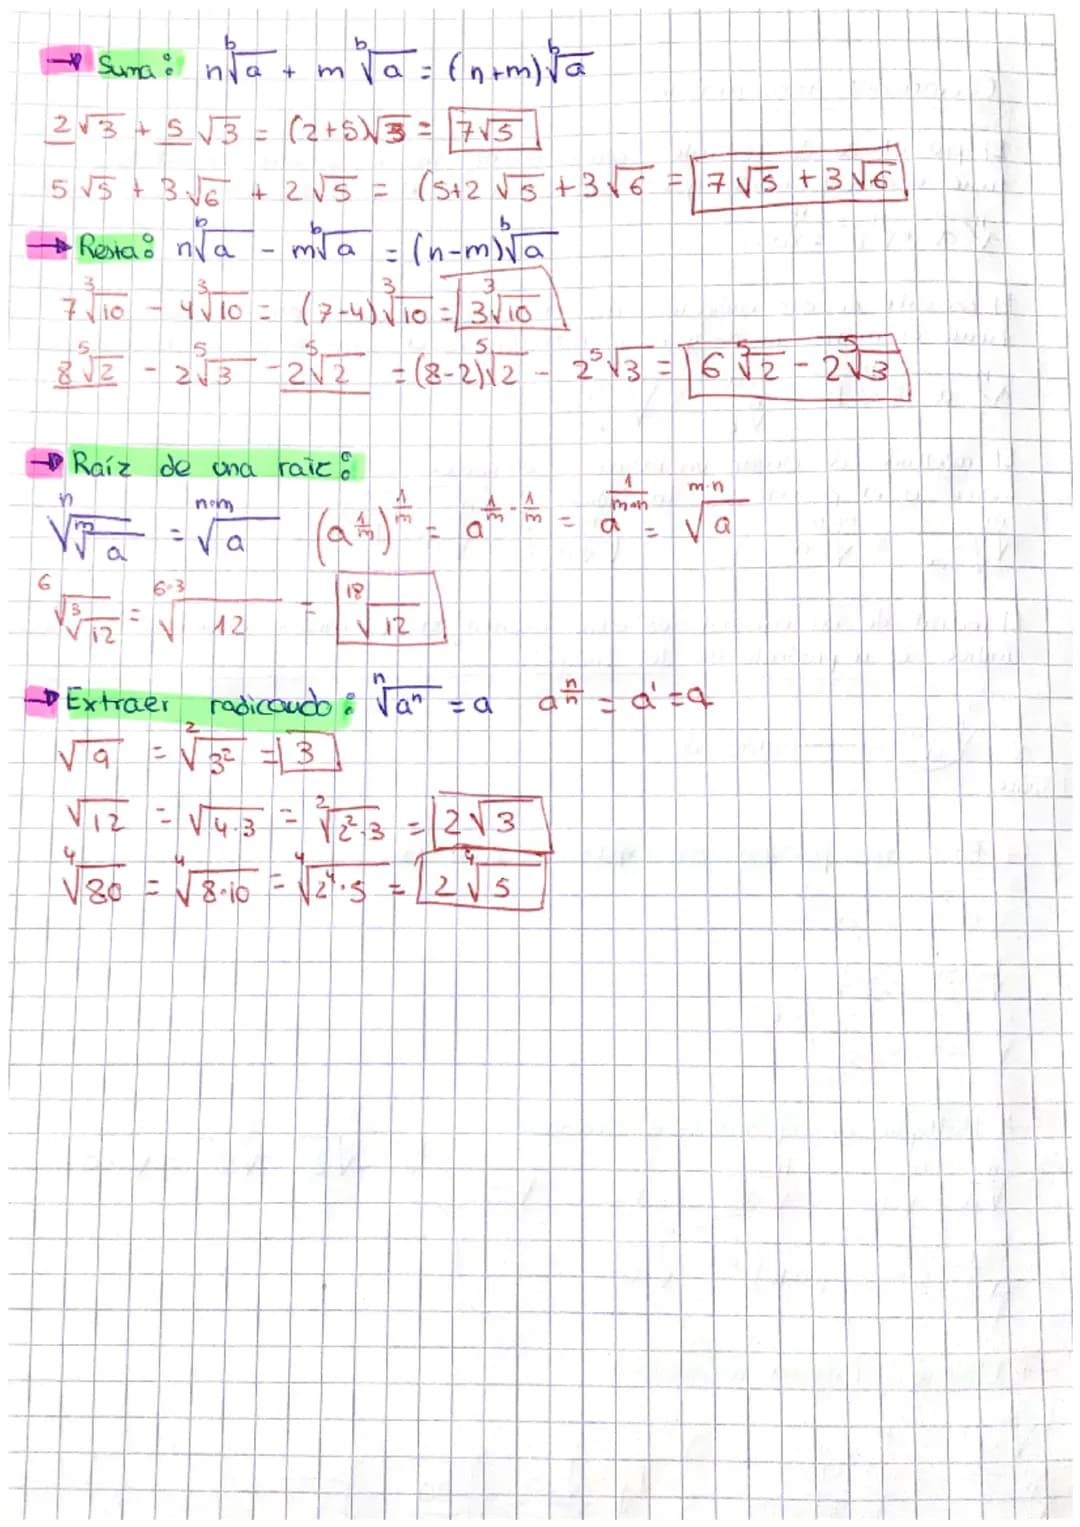 → Suma: n ᵇ√a + m ᵇ√a = (n+m) ᵇ√a
2√3 + 5√3 = (2+5)√3 = 7√5
5√5 + 3√6 + 2√5 = (5+2 √5 + 3√6 = 7√5 + 3√6
→ Resta: n ᵇ√a - m ᵇ√a = (n-m) ᵇ√a
7 ³√10 - 4 ³√10 = (7-4) ³√10 = 3 ³√10
8 ⁵√2 - 2 ⁵√3 - 2 ⁵√2 = (8-2) ⁵√2 - 2 ⁵√3 = 6 ⁵√2 - 2 ⁵√3
→ Raíz de una raíz:
ⁿ√(ᵐ√a) = ⁿ·ᵐ√a (a^(1/m))^(1/m) = a^(1/m · 1/m) = a^(1/m·n) = ᵐ·ⁿ√a
⁶√(³√12) = ⁶·³√12 = ¹⁸√12
→ Extraer radicando: ⁿ√aⁿ = a a^(n/n) = a¹ = a
√9 = ²√3² = 3
√12 = √4·3 = ²√2²·3 = 2√3
⁴√80 = ⁴√8·10 = ⁴√2⁴·5 = 2 ⁴√5